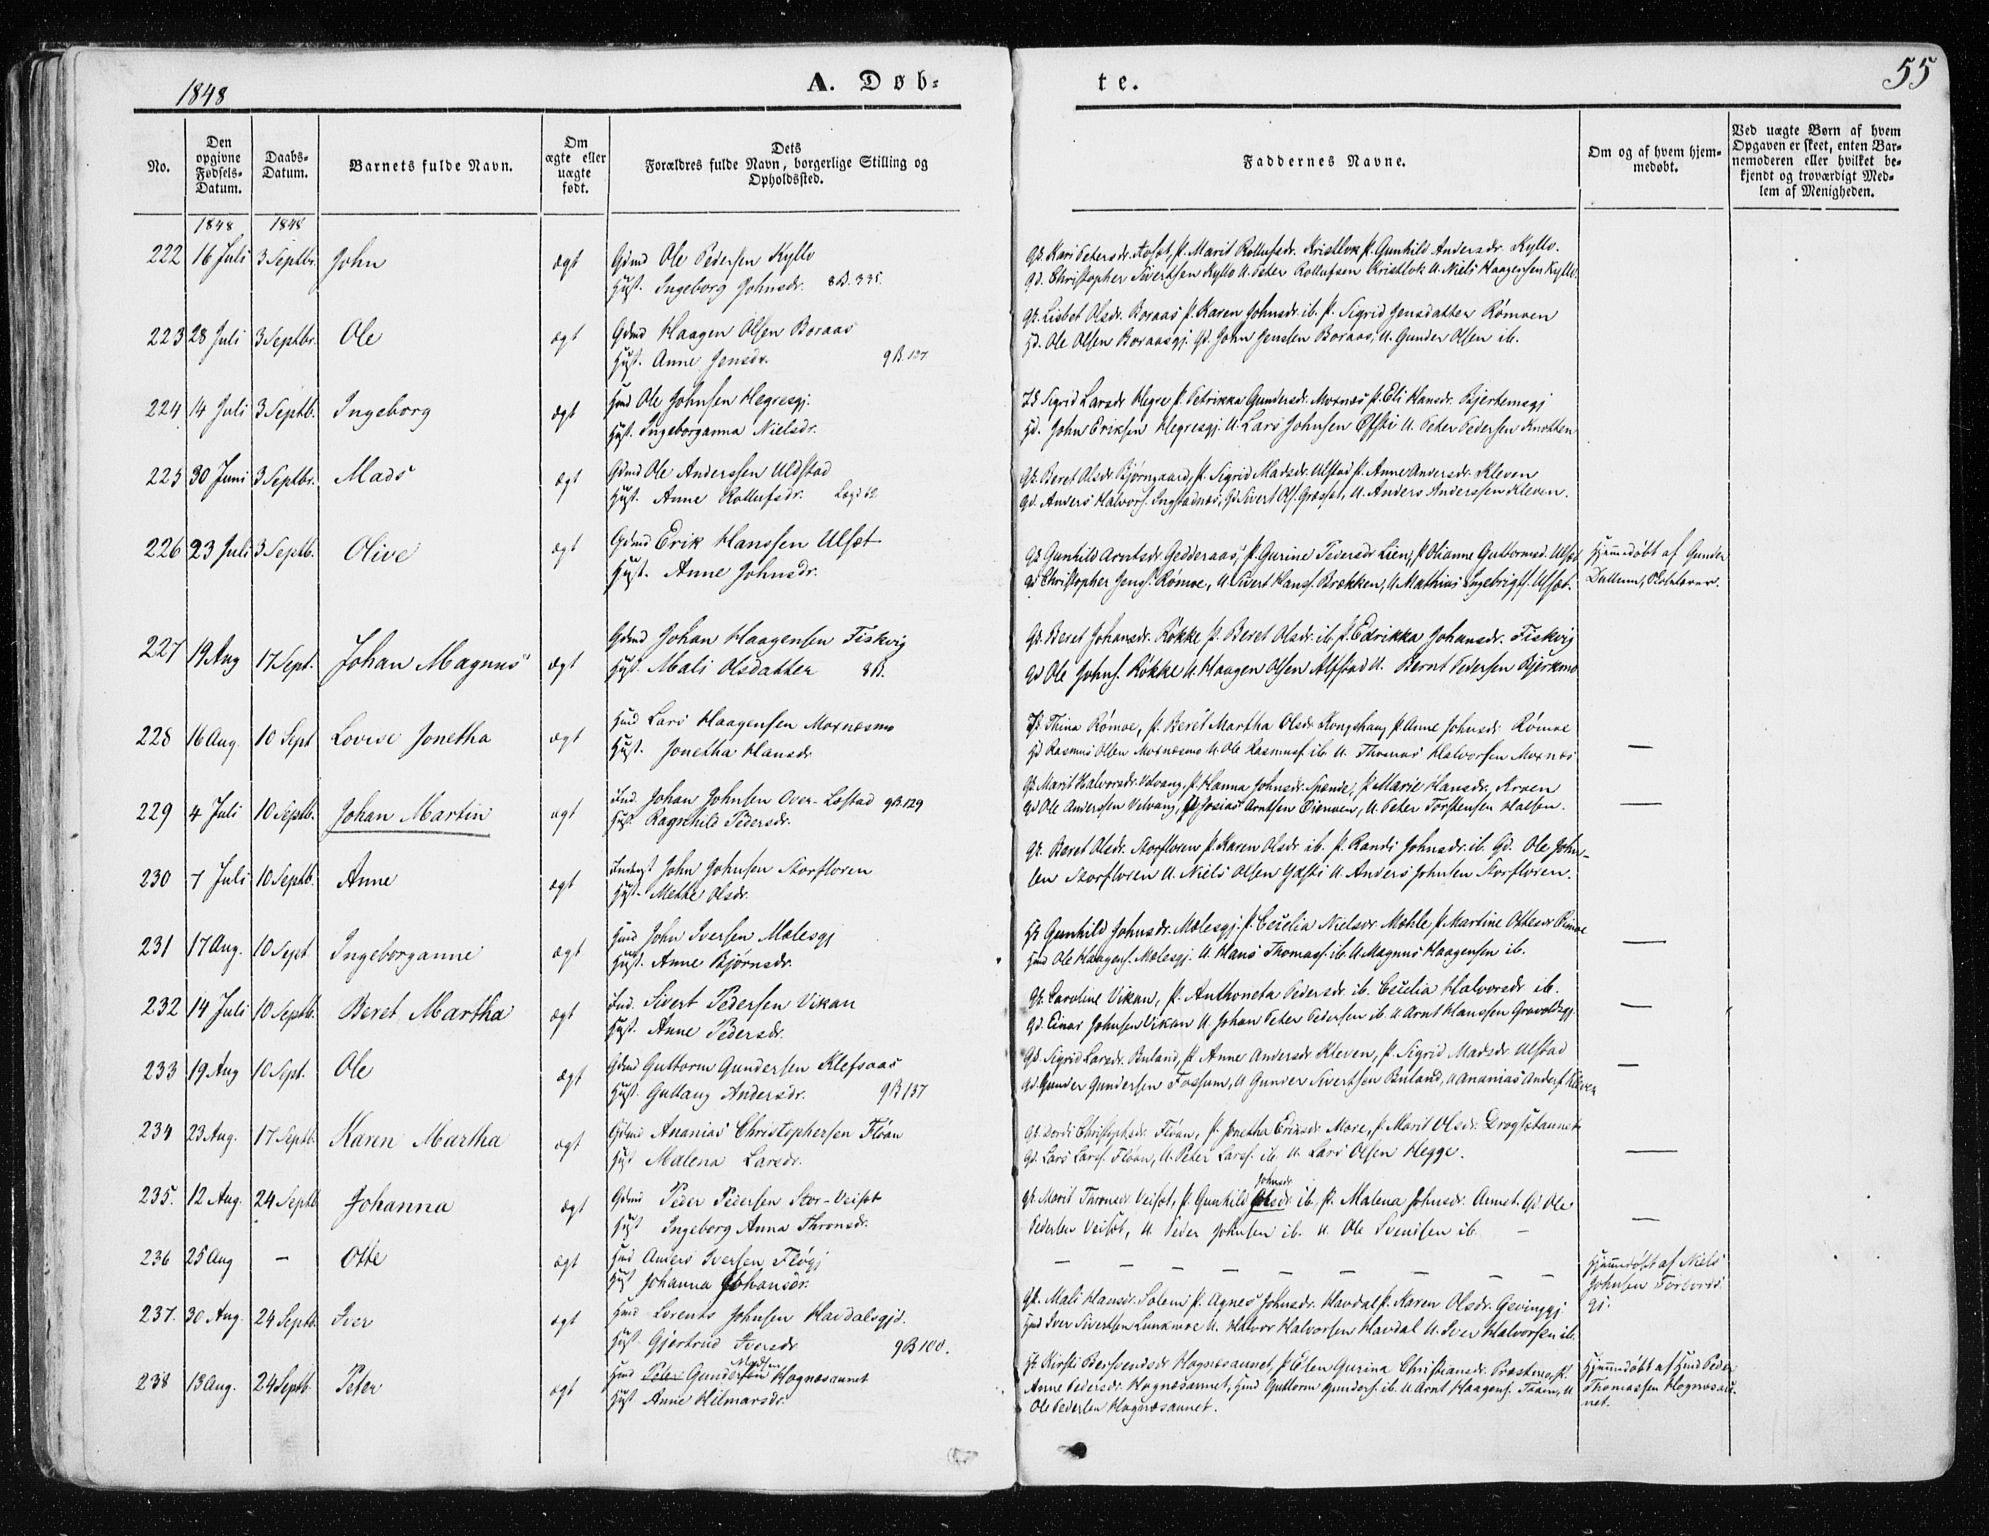 1848 A. Døb- te. 55
No.
Den opgivne Fødsels-Datum.
Daabs-Datum.
Barnets fulde Navn.
Om ægte eller uægte født.
Dets Forældres fulde Navn, borgerlige Stilling og Opholdssted.
Faddernes Navne.
Om og af hvem hjemmedøbt.
Ved uægte Børn af hvem Opgaven er skeet, enten Barnemoderen eller hvilket bekjendt og troværdigt Medlem af Menigheden.
1848 1848
222 16 Juli 3 Septbr. John ægt Gdmd Ole Pedersen Kyllo
Hust. Ingeborg Johnsdr. 8B. 335.
Marit Rollufsdr. Kristlok P. Gunhild Andersdr. Kyllo.
Gd. Christopher Sivertsen Kyllo U. Peter Rollufsen Kristlok U. Niels Haagensen Kyllo
223 28 Juli 3 Septbr. Ole ægt Gdmd Haagen Olsen Boraas
Hust. Anne Jensdr. 9B 107
Lisbet Olsdr. Boraas P. Karen Johnsdr. ib. P. Sigrid Jensdatter Rømoen
Hd. Ole Olsen Boraasgj. Gd. John Jensen Boraas, U. Gunder Olsen ib.
224 14 Juli 3 Septb. Ingeborg ægt Hmd Ole Johnsen Hegresgj.
Hust. Ingeborganna Nielsdr.
Sigrid Larsdr Hegre P. Petrikka Gundersdr. Moxnæs P. Eli Hansdr. Bjertemsgj
Hd. John Eriksen Hegresgj. U. Lars Johnsen Øfsti U. Peter Pedersen Knotten
225 30 Juni 3 Septbr. Mads ægt Gdmd Ole Anderssen Uldstad
Hust. Anne Rollufsdr.
Beret Olsdr Bjørngaard, P. Sigrid Madsdr. Ulstad P. Anne Andersdr. Kleven
Gd. Anders Halvors. Ingstadnæs, Gd Sivert Ols. Græset, U. Anders Anderssen Kleven.
226 23 Juli 3 Septb. Olive ægt Gdmd Erik Hanssen Ulset
Hust. Anne Johnsdr.
Gunhild Arntsdr Gedderaas, P. Gurine Iversdr Lien, P. Olianne Guttormsd. Ulset Hjemmedøbt af Gunder
Gd Christopher Jens. Rømoe, U. Sivert Hans. Brækken, U. Mathias Ingebrigts. Ulset. Dullum,
227 19 Aug 17 Sept. Johan Magnus ægt Gdmd Johan Haagensen Fiskvig
Hust. Mali Olsdatter 8B.
Beret Johansdr. Røkke P. Beret Olsdr. ib. P. Edrikka Johansdr. Fiskvig
Gd Ole Johns. Røkke U. Haagen Olsen Alstad U. Bernt Pedersen Bjerkmo
228 16 Aug. 10 Sept Lovise Jonetha ægt Hmd Lars Haagensen Moxnesmo
Hust. Jonetha Hansdr.
Thina Rømoe, P. Beret Martha Olsdr Kongshaug P. Anne Johnsdr Rømoe
Hd Rasmus Olsen Moxnæsmo U. Ole Rasmuss. ib U. Thomas Halvorsen Moxnæs —
229 4 Juli 10 Septb. Johan Martin ægt Ind. Johan Johnsen Over-Læstad 9B.129
Hust. Ragnhild Pedersdr.
Marit Halvorsdr. Velvang, P. Hanna Johnsdr. P. Marie Hansdr.
Gd Ole Anderssen Velvang, Josias Arntsen U. Peter Torstensen Halsen. —
230 7 Juli 10 Septb. Anne ægt Inderst John Johnsen Storfloren
Hust. Mette Olsdr.
Beret Olsdr. Storfloren P. Karen Olsdr ib. P. Randi Johnsdr. ib. Gd. Ole John-
sen Storfloren U. Niels Olsen U. Anders Johnsen Storfloren.
231 17 Aug. 10 Sept. Ingeborganne ægt Hmd John Iversen Mælesgj
Hust. Anne Bjørnsdr.
Gunhild Johnsdr. Mælesgj. P. Cecelia Nielsdr Mæhle, P. Martine Ottesdr
Hmd Ole Haagens. Mælesgj. U. Hans Thomass. ib. U. Magnus Haagensen ib. —
232 14 Juli 10 Septb. Beret Martha ægt Ind. Sivert Pedersen Vikan
Hust. Anne Pedersdr.
Caroline Vikan, P. Anthoneta Pedersdr ib. Cecelia Halvorsdr ib.
Gd. Einar Johnsen Vikan U. Johan Peter Pedersen ib. U. Arnt Hanssen Gravoldsgj. —
233 19 Aug 10 Sept. Ole ægt Gdmd Guttorm Gundersen Klefsaas
Hust. Guttaug Andersdr. 9B137
Sigrid Larsdr. Buland, P. Anne Andersdr Kleven, P. Sigrid Madsdr Ulstad
Gd. Gunder Gundersen Fossum, U Gunder Sivertsen Buland, U Ananias Anders. Kleven —
234 23 Aug. 17 Septb. Karen Martha ægt Gdmd Ananias Christophersen Floan
Hust Malena Larsdr.
Dordi Christophsdr. Floan, P. Jonetha Eriksdr More, P. Marit Olsdr.
Gd. Lars Lars. Floan, U. Peter Lars. ib. U. Lars Olsen Hegge. —
235. 12 Aug. 24 Septb Johanna ægt Gdmd Peder Pedersen Stor-Veiset
Hust Ingeborg Anna Thronsdr.
Johnsdr.
Marit Thronsdr Veiset, P. Gunhild Olsdr. ib. P. Malena Johnsdr. Annet. Gd. Ole
Pedersen Veiset, U. Peder Johnsen ib. U. Ole Svendsen ib. — —
236 25 Aug — Otte ægt Hmd Anders Iversen Fløgj
Hust Johanna Johansdr.
— — — — — — — — Hjemmedøbt af Niels
Johnsen Forbords
gj.
237. 30 Aug. 24 Septb. Iver ægt Hmd Lorents Johnsen Havdalsgjd.
Hust. Gjertrud Iversdr 9B 100.
Mali Hansdr. Solem P. Agnes Johnsdr. Havdal P. Karen Olsdr. Gevinggj.
Hmd Iver Sivertsen Lunkmoe U. Halvor Halvorsen Havdal U. Iver Halvorsen ib.
238 13 Aug. 24 Septb. Peter ægt Hmd Peter Gundersen Hognæsaunet
Hust Anne Hilmarsdr.
Kirsti Bersvendsdr Hognæsaunet, P. Elen Gurina Christiansdr. Præstmo, P. Hjemmedøbt af Hmd Peder
Anne Pedersdr. Hognæsaunet, Hmd Guttorm Gunders. ib. U. Arnt Haagens. U. Thomassen Hognæsau-
Ole Pedersen Hognæsaunet. net.